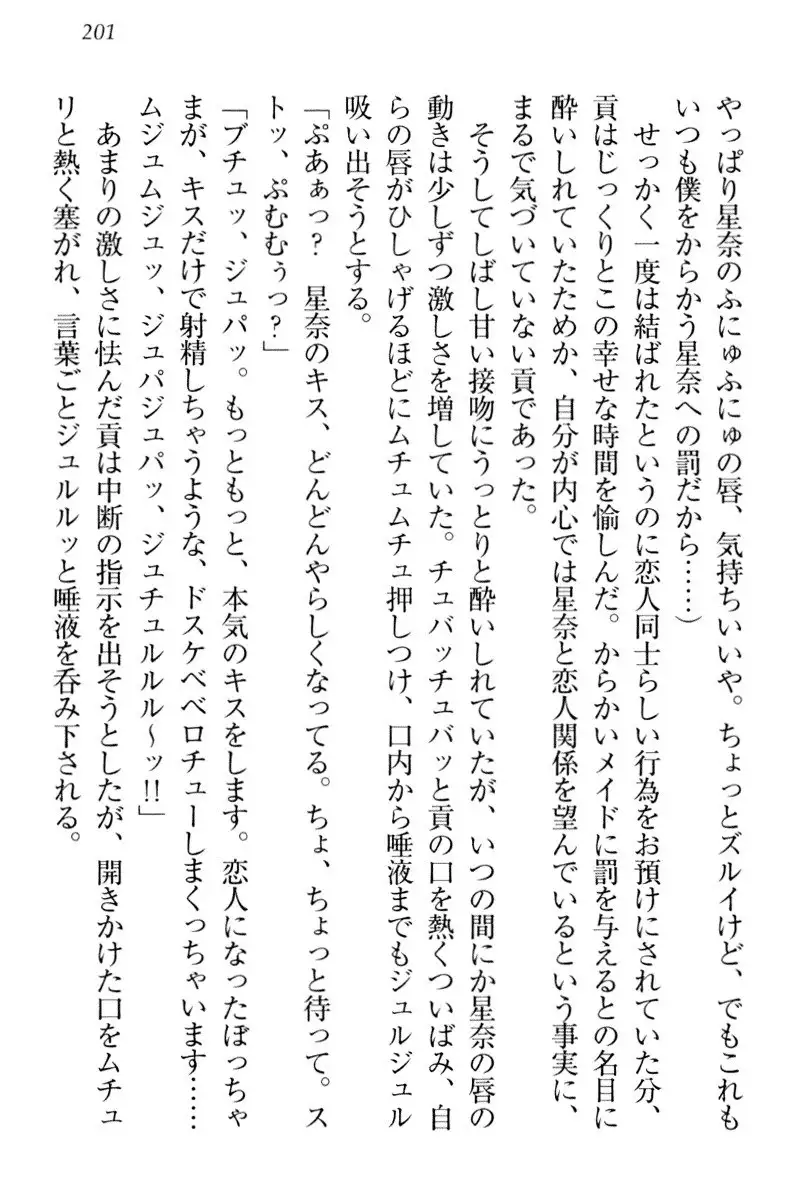 201
やっぱり星奈のふにゅふにゅの唇、気持ちいいや。ちょっとズルイけど、でもこれも
いつも僕をからかう星奈への罰だから……)
せっかく一度は結ばれたというのに恋人同士らしい行為をお預けにされていた分、
貢はじっくりとこの幸せな時間を愉しんだ。からかいメイドに罰を与えるとの名目に
酔いしれていたためか、自分が内心では星奈と恋人関係を望んでいるという事実に、
まるで気づいていない貢であった。
そうしてしばし甘い接吻にうっとりと酔いしれていたが、いつの間にか星奈の唇の
動きは少しずつ激しさを増していた。チュバッチュバッと貢の口を熱くついばみ、自
らの唇がひしゃげるほどにムチュムチュ押しつけ、口内から唾液までもジュルジュル
吸い出そうとする。
「ぷあぁっ？　星奈のキス、どんどんやらしくなってる。ちょ、ちょっと待って。ス
トッ、ぷむむぅっ？」
「ブチュッ、ジュパッ。もっともっと、本気のキスをします。恋人になったぼっちゃ
まが、キスだけで射精しちゃうような、ドスケベベロチューしまくっちゃいます……
ムジュムジュッ、ジュパジュパッ、ジュチュルルル～ッ!!」
あまりの激しさに怯んだ貢は中断の指示を出そうとしたが、開きかけた口をムチュ
リと熱く塞がれ、言葉ごとジュルルッと唾液を呑み下される。